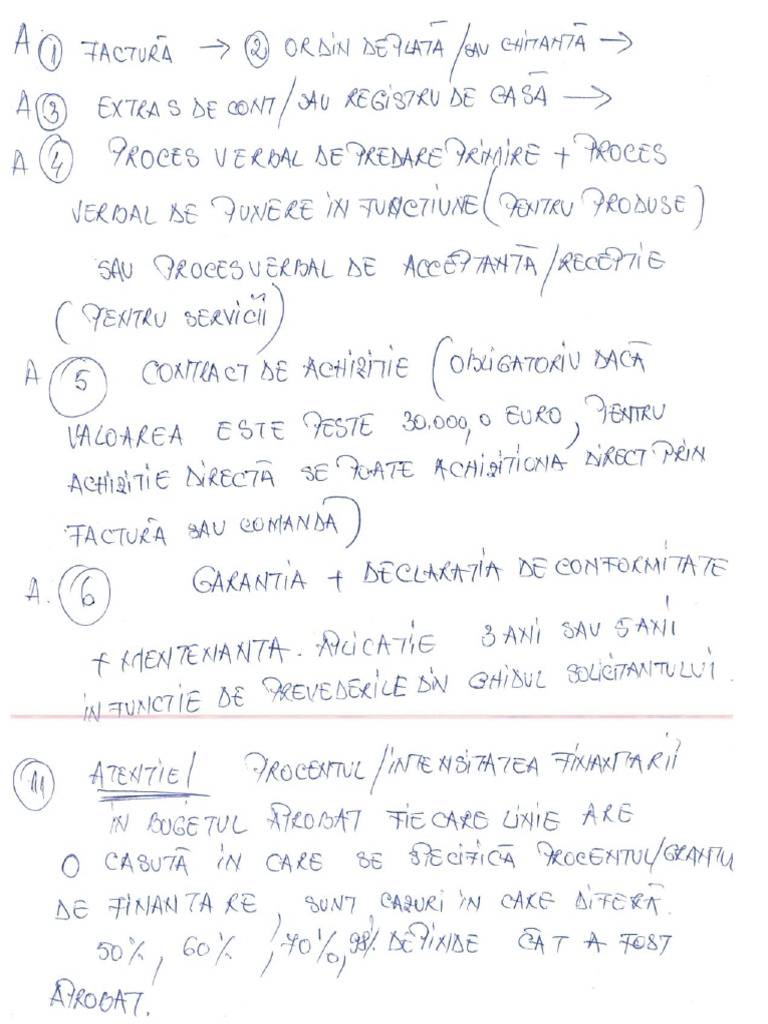 A ① FACTURĂ → ② ORDIN DE PLATĂ / SAU CHITANTĂ →
A ③ EXTRAS DE CONT / SAU REGISTRU DE CASĂ →
A ④ PROCES VERBAL DE PREDARE PRIMIRE + PROCES
VERBAL DE PUNERE IN FUNCTIUNE (PENTRU PRODUSE)
SAU PROCES VERBAL DE ACCEPTANTĂ / RECEPTIE
(PENTRU SERVICII)
A ⑤ CONTRACT DE ACHIZITIE (OBLIGATORIU DACĂ
VALOAREA ESTE PESTE 30.000,0 EURO, PENTRU
ACHIZITIE DIRECTĂ SE POATE ACHIZITIONA DIRECT PRIN
FACTURĂ SAU COMANDĂ)
A. ⑥ GARANTIA + DECLARATIA DE CONFORMITATE
+ MENTENANTA. APLICATIE 3 ANI SAU 5 ANI
IN FUNCTIE DE PREVEDERILE DIN GHIDUL SOLICITANTULUI.
⑪ ATENTIE! PROCENTUL / INTENSITATEA FINANTARII
IN BUGETUL APROBAT FIECARE LINIE ARE
O CASUTĂ IN CARE SE SPECIFICĂ PROCENTUL/GRANTU
DE FINANTARE, SUNT CAZURI IN CARE DIFERĂ.
50%, 60%, 70%, 98% DEPINDE CĂT A FOST
APROBAT.